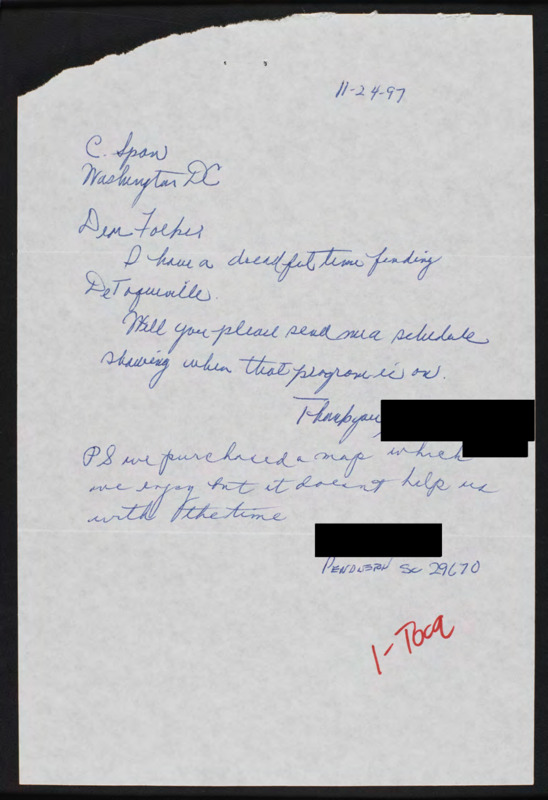 11-24-97
C. Span
Washington DC
Dear Folks
I have a dreadful time finding
DeToqueville.
Will you please send me a schedule
showing when that program is on.
Thank you
PS we purchased a map which
we enjoy but it doesnt help us
with the time
PENDLETON SC 29670
1-Tocq